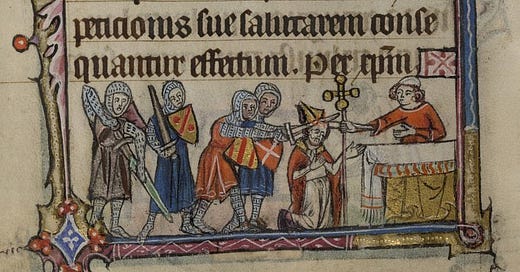 peticionis sue salutarem conse
quantur effectum. Per xp̄m